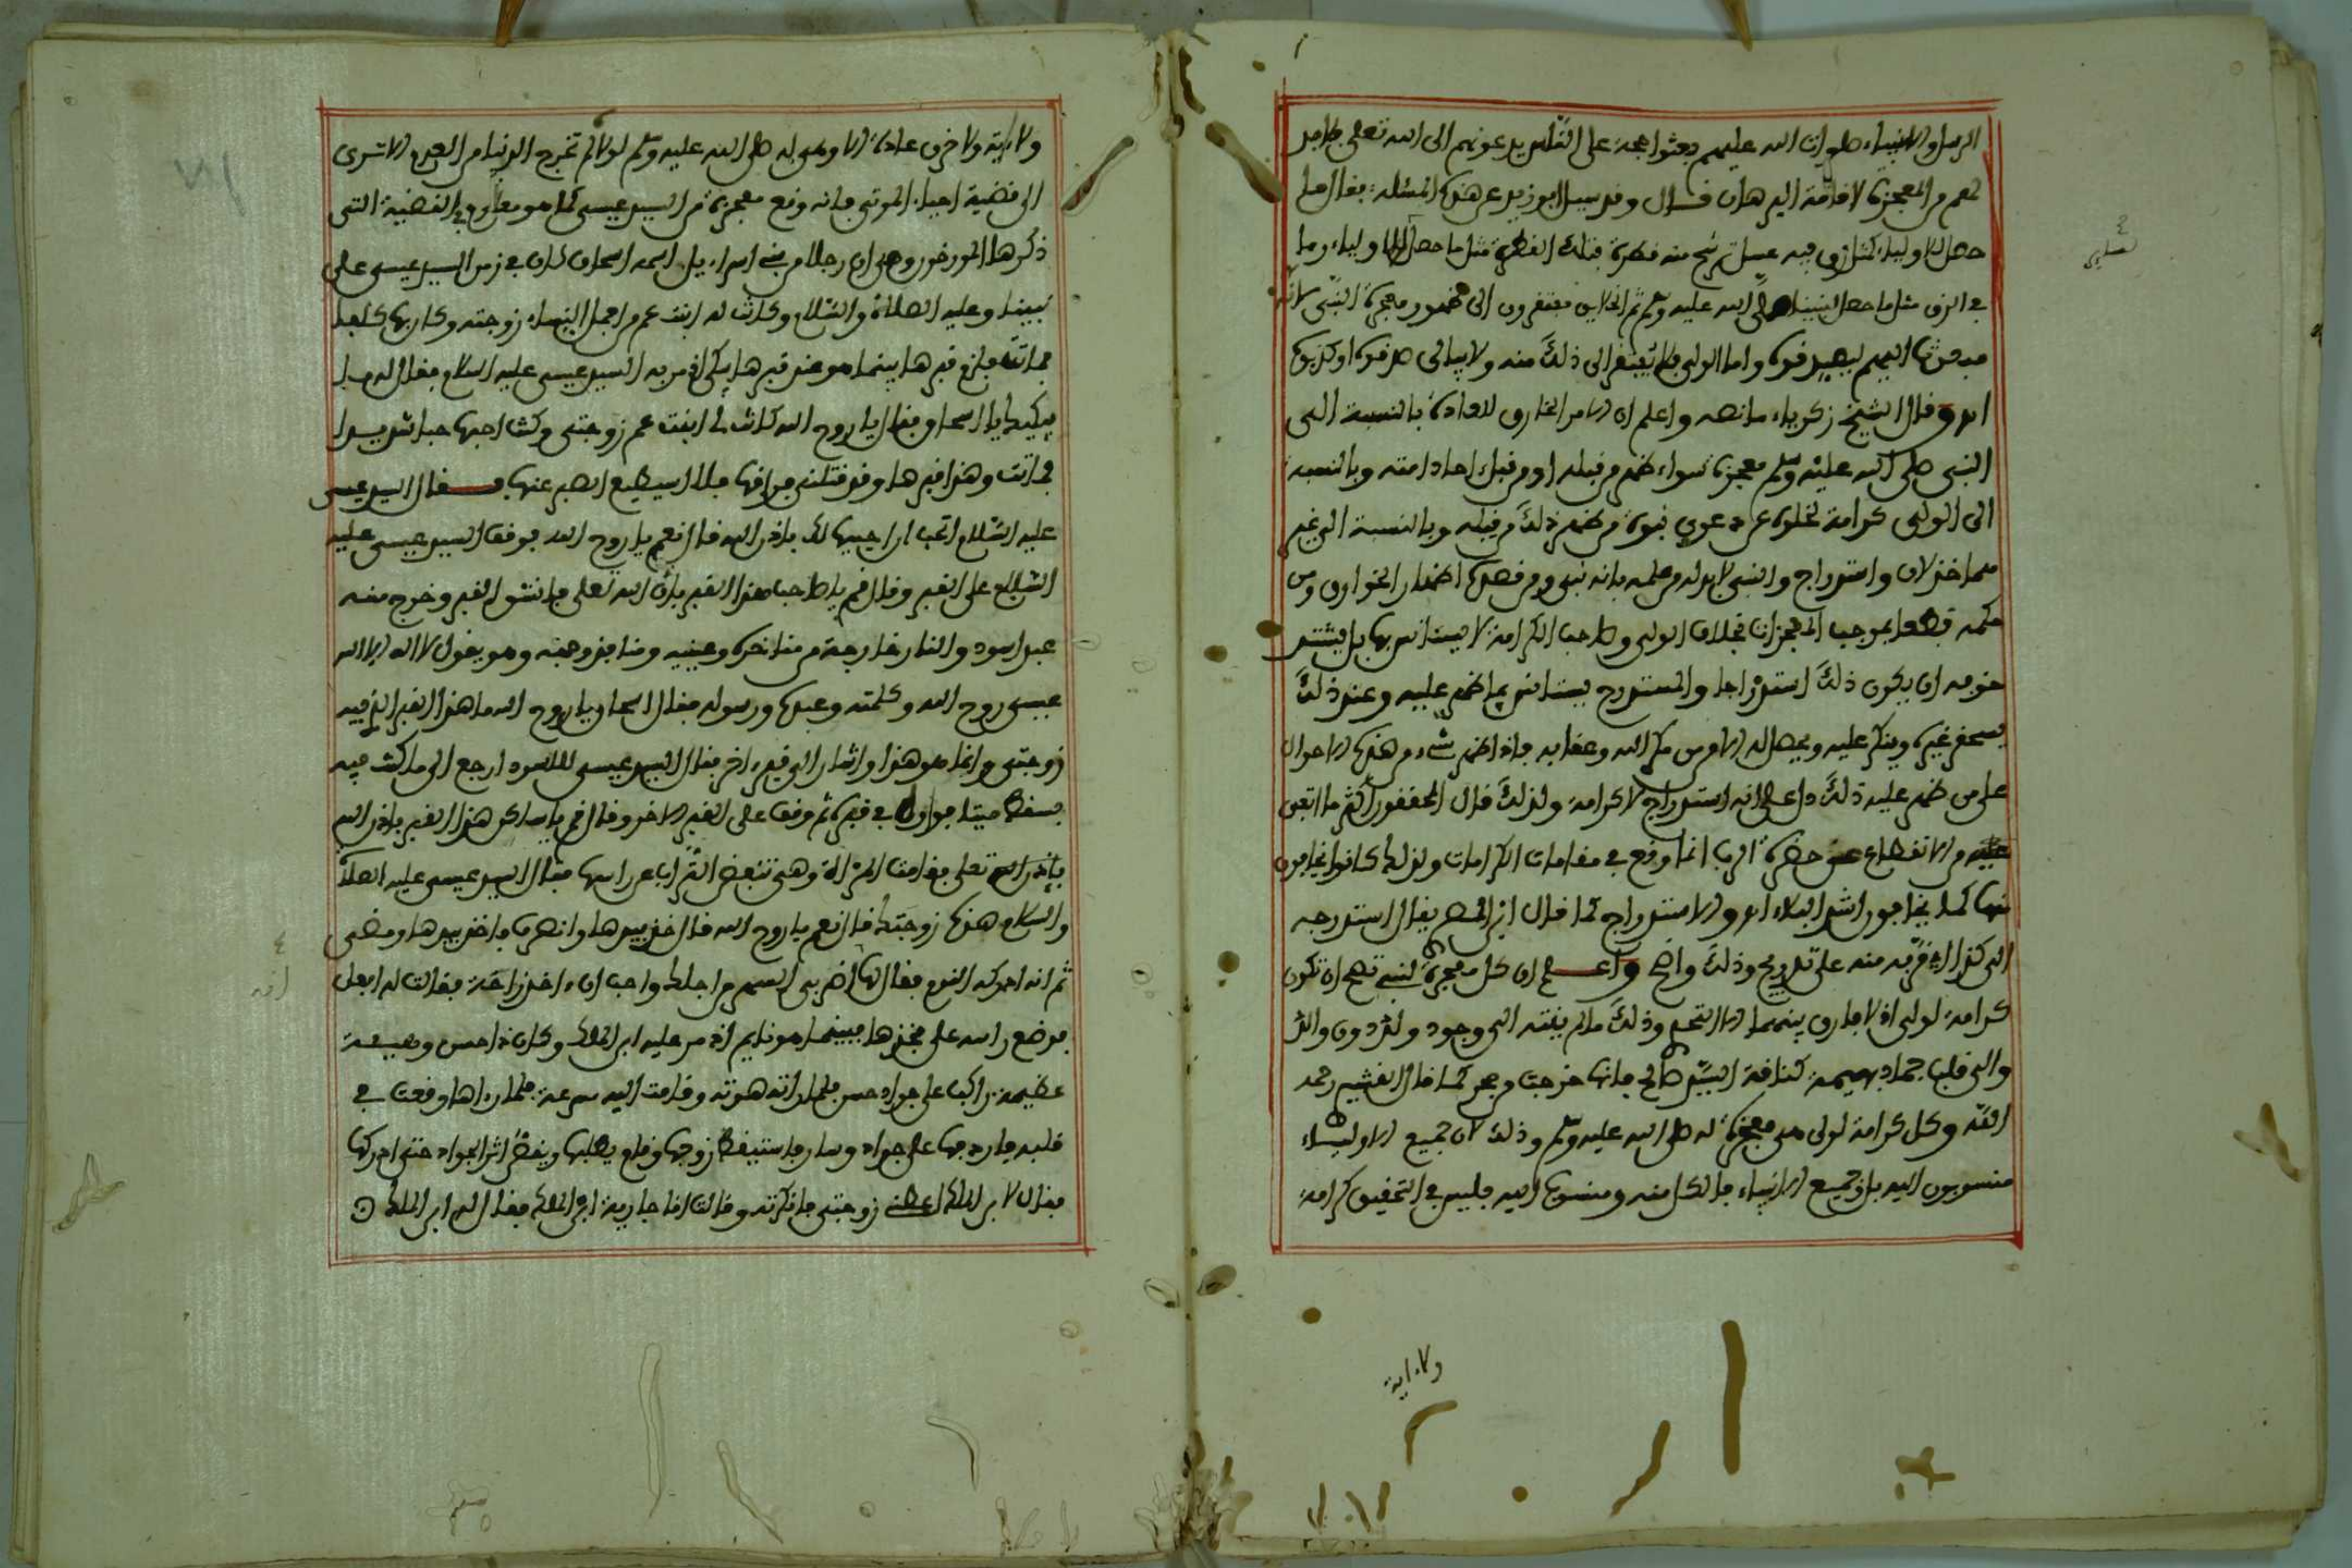 الرسل والانبياء صلوات الله عليهم بعثوا حجة على الناس يدعونهم الى الله تعلى فلا بد
لهم من المعجزة لاقامة البرهان قال وقد سيل ابو يزيد عن هذه المسئلة فقال ما
حصل للاولياء كمثل زق فيه عسل ترشح منه قطرة فتلك القطرة مثل ما حصل للاولياء وما
في الزق مثل ما حصل لنبينا صلى الله عليه وسلم ثم الخلايق مفتقرون الى ظهور معجزة النبي لانه
مبعوث اليهم ليصدقوه واما الولي فلا يفتقر الى ذلك منه ولا يبالي صدقوه او كذبوه
اه وقال الشيخ زكرياء ما نصه واعلم ان الامر الخارق للعادة بالنسبة الى
النبي صلى الله عليه وسلم معجزة سواء ظهر من قبله او من قبل احاد امته وبالنسبة
الى الولي كرامة لخلوه عن دعوى نبوة من ظهر ذلك من قبله وبالنسبة الى غير
هما خذلان واستدراج والنبي لا بد له من علمه بانه نبي ومن قصده اظهار الخوارق ومن
حكمه قطعا بموجب المعجزات بخلاف الولي وصاحب الكرامة لا يستانس بها بل يشتد
خوفه ان يكون ذلك استدراجا والمستدرج يستانس بما ظهر عليه وعند ذلك
يستحقر غيره ويتكبر عليه ويحصل له الامن من مكر الله وعقابه فاذا ظهر شيء من هذه الاحوال
على من ظهر عليه ذلك دل على انه استدراج لا كرامة ولذلك قال المحققون اكثر ما اتفق
من الانقطاع عن حضرة الرب انما وقع في مقامات الكرامات ولذلك كانوا يخافون
منها كما يخافون اشد البلاء اه والاستدراج كما قال ابن المصر يقال استدرجه
الى كذا اذا قربه منه على تدريج وذلك واضح واعلم ان كل معجزة لنبي تصح ان تكون
كرامة لولي اذ لا فارق بينهما الا التحدي وذلك ما لم ينته الى وجود ولد دون والد
والى قلب جماد بهيمة كناقة السيد صالح فانها خرجت من حجر كما قال القشيري رحمه
الله وكل كرامة لولي هي معجزة له صلى الله عليه وسلم وذلك لان جميع الاولياء
منسوبون اليه بل وجميع الانبياء فالكل منه ومنسوب اليه فليس في التحقيق كرامة
ولا اية
ولا اية ولا خرق عادة الا وهو له صلى الله عليه وسلم لولاه لم تخرج الدنيا من العدم الا ترى
الى قضية احياء الموتى فانه وقع معجزة من السيد عيسى كما هو معلوم في القضية التي
ذكرها المورخون وهي ان رجلا من بني اسراءيل اسمه اسحاق كان في زمن السيد عيسى على
نبينا وعليه الصلاة والسلام وكانت له ابنت عم من اجمل النساء زوجته وكان بها كلفا
فماتت فلزم قبرها بينما هو عند قبرها يبكي اذ مر به السيد عيسى عليه السلام فقال له ما
يبكيك يا اسحاق فقال يا روح الله كانت لي ابنت عم زوجتي وكنت احبها حبا شديدا
فماتت وهذا قبرها وقد قتلني فراقها فلا استطيع الصبر عنها فقال السيد عيسى
عليه السلام اتحب ان احييها لك باذن الله قال نعم يا روح الله فوقف السيد عيسى عليه
السلام على القبر وقال قم يا صاحب هذا القبر باذن الله تعلى فانشق القبر وخرج منه
عبد اسود والنار خارجة من مناخره وعينيه ومنافذ وجهه وهو يقول لا اله الا الله
عيسى روح الله وكلمته وعبده ورسوله فقال اسحاق يا روح الله ما هذا القبر الذي فيه
زوجتي وانما هو هذا واشار الى قبر اخر فقال السيد عيسى للاسود ارجع الى ما كنت فيه
فسقط ميتا فواراه في قبره ثم وقف على القبر الاخر وقال قم يا ساكن هذا القبر باذن الله
باذن الله تعلى فقامت المراة وهي تنفض التراب عن راسها فقال السيد عيسى عليه الصلاة
والسلام هذه زوجتك قال نعم يا روح الله قال خذ بيدها وانصرف فاخذ بيدها ومضى
ثم انه ادركه النوم فقال لها اضر بي السهر من اجلك واحب ان اخذ راحة فقالت له افعل
فوضع راسه على فخذها فبينما هو نايم اذ مر عليه ابن الملك وكان ذا حسن وهيبة
عظيمة راكبا على جواد حسن فلما راته هوته وقامت اليه سرعة فلما راها وقعت في
قلبه فاردفها على جواده وسار فاستيقظ زوجها وقام يطلبها ويقفوا اثر الجواد حتى ادركها
فقال لابن الملك اعطني زوجتي فانكرته وقالت انا جارية ابن الملك فقال له ابن الملك